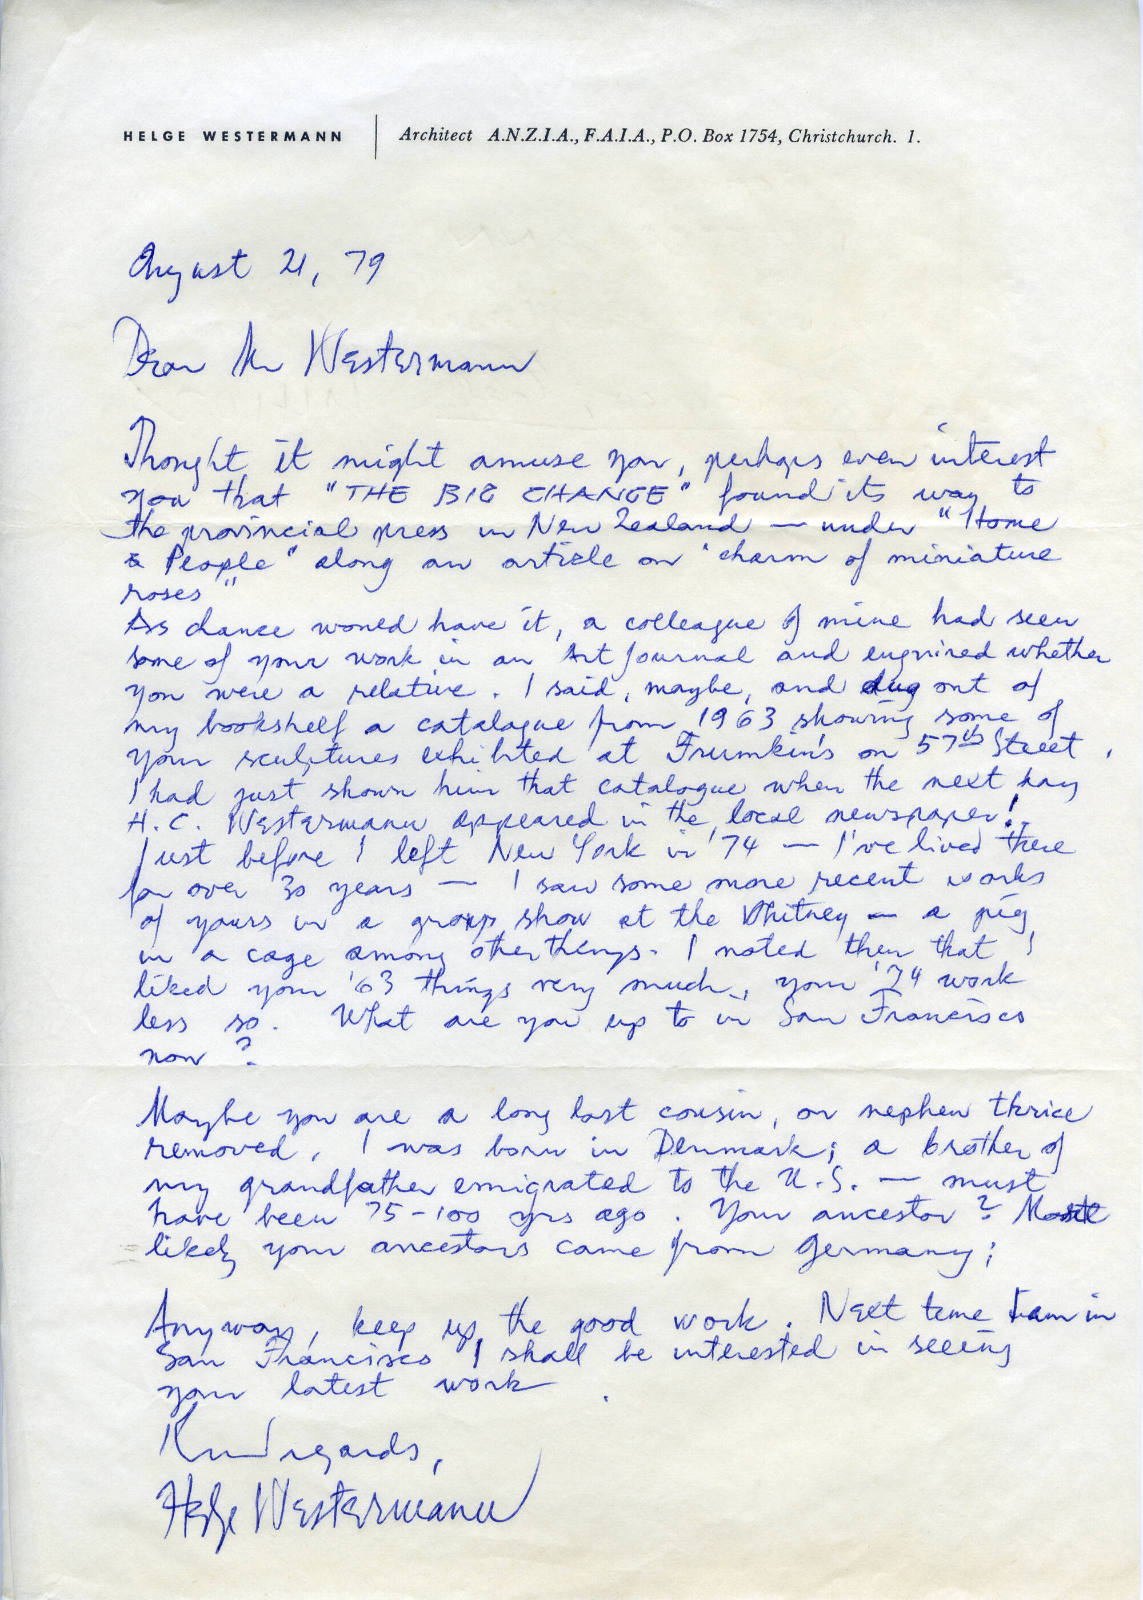 HELGE WESTERMANN | Architect A.N.Z.I.A., F.A.I.A., P.O. Box 1754, Christchurch. 1.
August 21, 79
Dear Mr Westermann
Thought it might amuse you, perhaps even interest
you that "THE BIG CHANGE" found its way to
the provincial press in New Zealand — under "Home
& People" along an article on "charm of miniature
roses"
As chance would have it, a colleague of mine had seen
some of your work in an Art Journal and enquired whether
you were a relative. I said, maybe, and dug out of
my bookshelf a catalogue from 1963 showing some of
your sculptures exhibited at Frumkin's on 57th Street.
I had just shown him that catalogue when the next day
H.C. Westermann appeared in the local newspaper!
Just before I left New York in '74 — I've lived there
for over 30 years — I saw some more recent works
of yours in a group show at the Whitney — a pig
in a cage among other things. I noted then that I
liked your '63 things very much, your '74 work
less so. What are you up to in San Francisco
now?
Maybe you are a long lost cousin, or nephew thrice
removed, I was born in Denmark; a brother of
my grandfather emigrated to the U.S. — must
have been 75-100 yrs ago. Your ancestor? Most
likely your ancestors came from Germany;
Anyway, keep up the good work. Next time I am in
San Francisco I shall be interested in seeing
your latest work.
Kind regards,
Helge Westermann